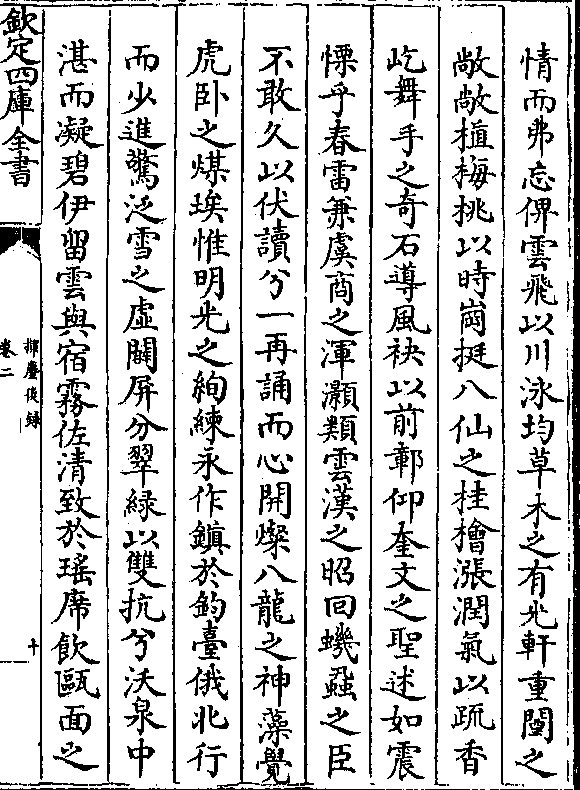 情而弗忘俾雲飛以川泳均草木之有光軒重閽之
敞敞植梅挑以時崗挺八仙之桂檜漲潤氣以疏香
屹舞手之奇石導風袂以前鄣仰奎文之聖述如震
慄乎春雷兼虞商之渾灝類雲漢之昭回蟣蝨之臣
不敢久以伏讀兮一再誦而心開燦八龍之神藻覺
虎卧之煤埃惟明光之絢練永作鎮於鈞臺俄北行
而少進驚泛雪之虛闢屏分翠綠以雙抗兮沃泉中
湛而凝碧伊留雲與宿霧佐清致於瑤席飲甌面之
欽定四庫全書
揮麈後録
卷二
十